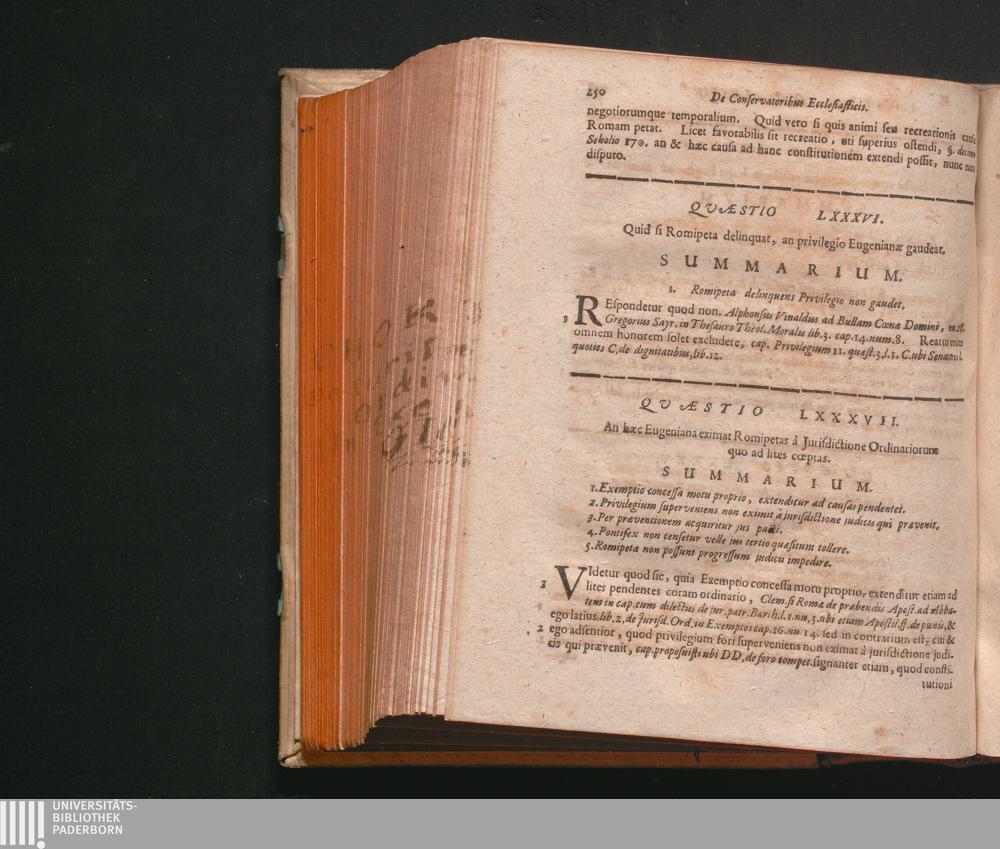 250
De Conservatoribus Ecclesiasticis.
negotiorumque temporalium. Quid vero si quis animi seu recreationis causa
Romam petat. Licet favorabilis sit recreatio, uti superius ostendi, §. decimo
Scholio 170. an & hæc causa ad hanc constitutionem extendi possit, nunc non
disputo.
QVÆSTIO LXXXVI.
Quid si Romipeta delinquat, an privilegio Eugenianæ gaudeat.
SUMMARIUM.
1. Romipeta delinquens Privilegio non gaudet.
REspondetur quod non. Alphonsus Vinaldus ad Bullam Cœnæ Domini,
Gregorius Sayr. in Thesauro Theol. Moralis lib.3. cap.14.num.8. Reatus enim
omnem honorem solet excludere, cap. Privilegium 11. quæst.3.l.1. C.ubi Senat.vel
quoties C. de dignitatibus, lib.12.
QVÆSTIO LXXXVII.
An hæc Eugeniana eximat Romipetas à Jurisdictione Ordinariorum
quo ad lites cœptas.
SUMMARIUM.
1. Exemptio concessa motu proprio, extenditur ad causas pendentes.
2. Privilegium superveniens non eximit à jurisdictione judicis qui prævenit.
3. Per præventionem acquiritur jus parti.
4. Pontifex non censetur velle jus tertio quæsitum tollere.
5. Romipeta non possunt progressum judicii impedire.
1 VIdetur quod sic, quia Exemptio concessa motu proprio, extenditur etiam ad
lites pendentes coram ordinario, Clem. si Romæ de præbendis Apost. ad Abba-
tem in cap. cum dilectus de jur. patr. Barth.l.1.nu.3.ubi etiam Apostil.ff. de pœnis, &
ego latius, lib.2. de Jurisd. Ord. in Exemptos cap.16.nu 14. sed in contrarium est, cui &
2 ego adsentior, quod privilegium fori superveniens non eximat à jurisdictione judi-
cis qui prævenit, cap. proposuisti ubi DD. de foro compet. signanter etiam, quod consti-
tutioni
UNIVERSITÄTS-
BIBLIOTHEK
PADERBORN